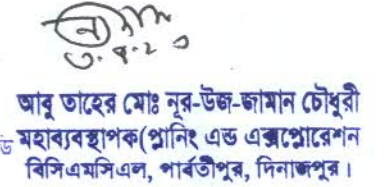 ৩.৪.২৩
আবু তাহের মোঃ নূর-উজ-জামান চৌধুরী
মহাব্যবস্থাপক(প্লানিং এন্ড এক্সপ্লোরেশন
বিসিএমসিএল, পার্বতীপুর, দিনাজপুর।